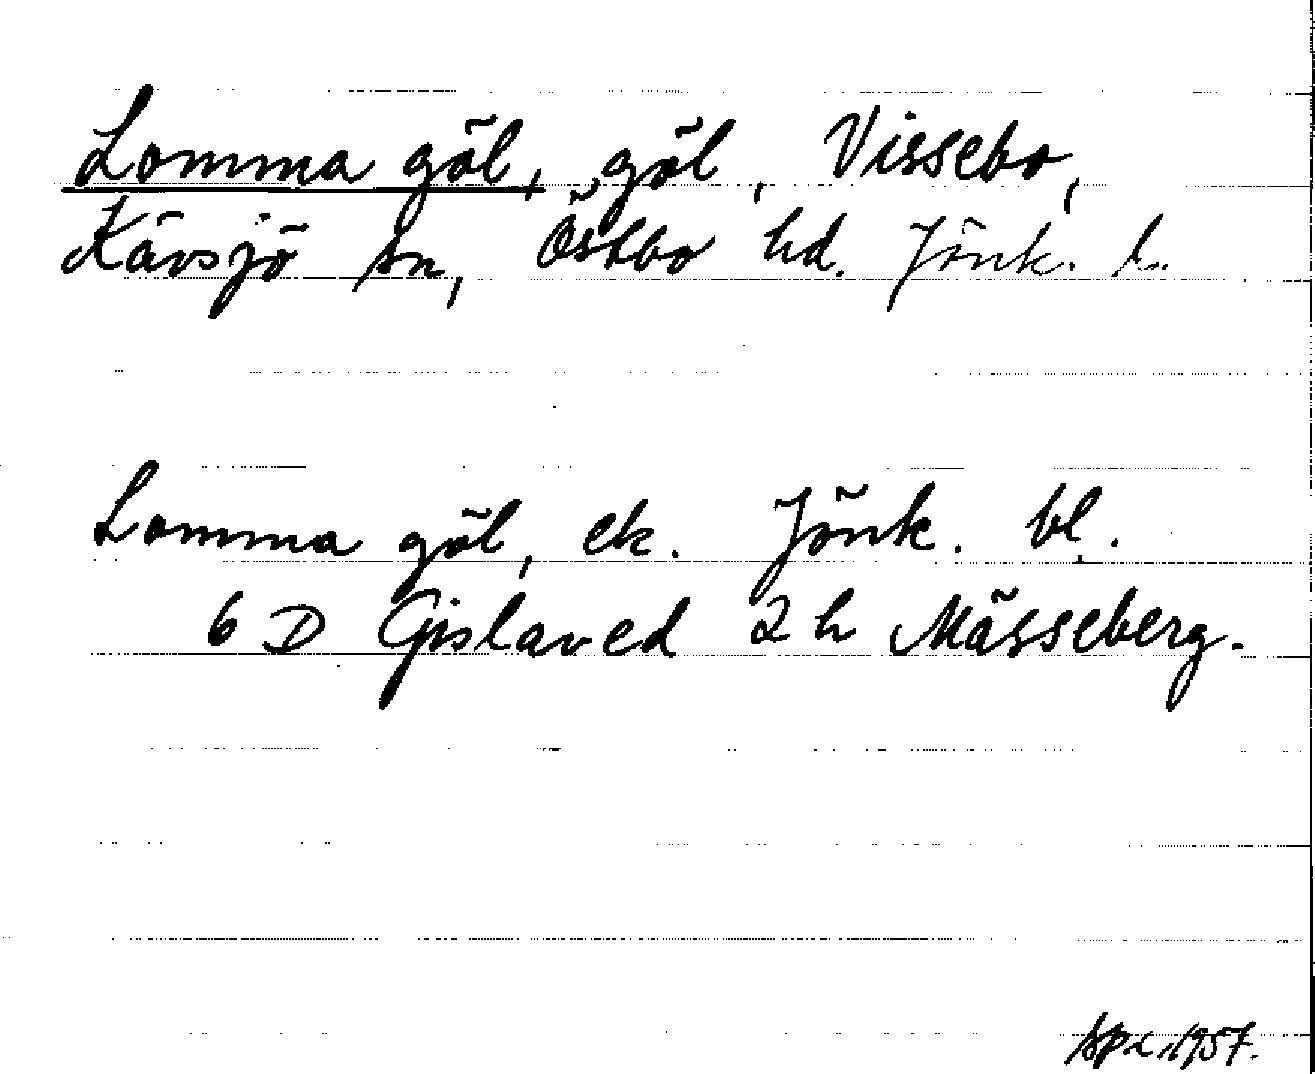 Lomma göl, göl, Vissebo,
Kävsjö sn, Östbo hd. Jönk. l.
Lomma göl, ek. Jönk. bl.
6 D Gislaved 2 h Mässeberg.
1957.